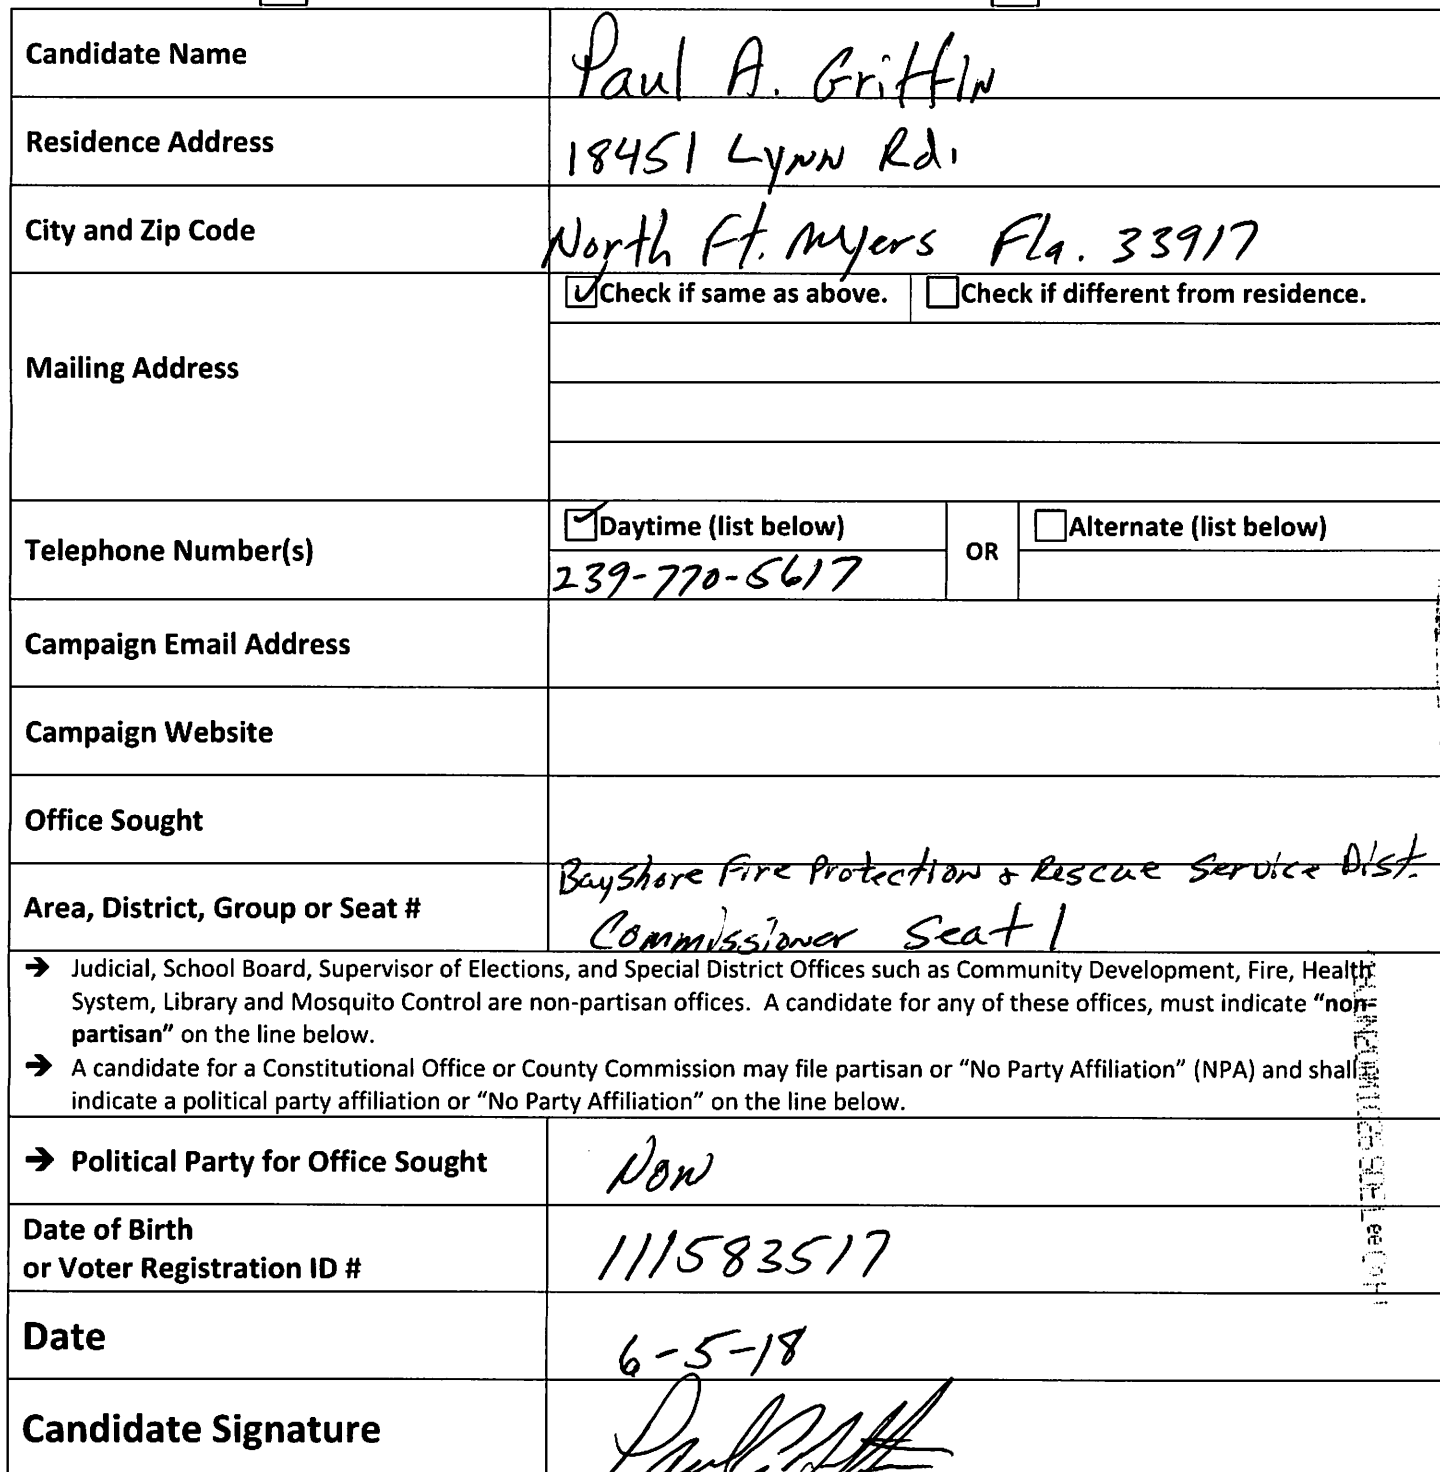 Candidate Name Paul A. Griffin
Residence Address 18451 Lynn Rd.
City and Zip Code North Ft. Myers Fla. 33917
Check if same as above. Check if different from residence.
Mailing Address
Daytime (list below) OR Alternate (list below)
Telephone Number(s) 239-770-5617
Campaign Email Address
Campaign Website
Office Sought
Bayshore Fire Protection & Rescue Service Dist.
Area, District, Group or Seat # Commissioner Seat 1
→ Judicial, School Board, Supervisor of Elections, and Special District Offices such as Community Development, Fire, Health
System, Library and Mosquito Control are non-partisan offices. A candidate for any of these offices, must indicate “non-
partisan” on the line below.
→ A candidate for a Constitutional Office or County Commission may file partisan or “No Party Affiliation” (NPA) and shall
indicate a political party affiliation or “No Party Affiliation” on the line below.
→ Political Party for Office Sought Non
Date of Birth
or Voter Registration ID # 111583517
Date 6-5-18
Candidate Signature